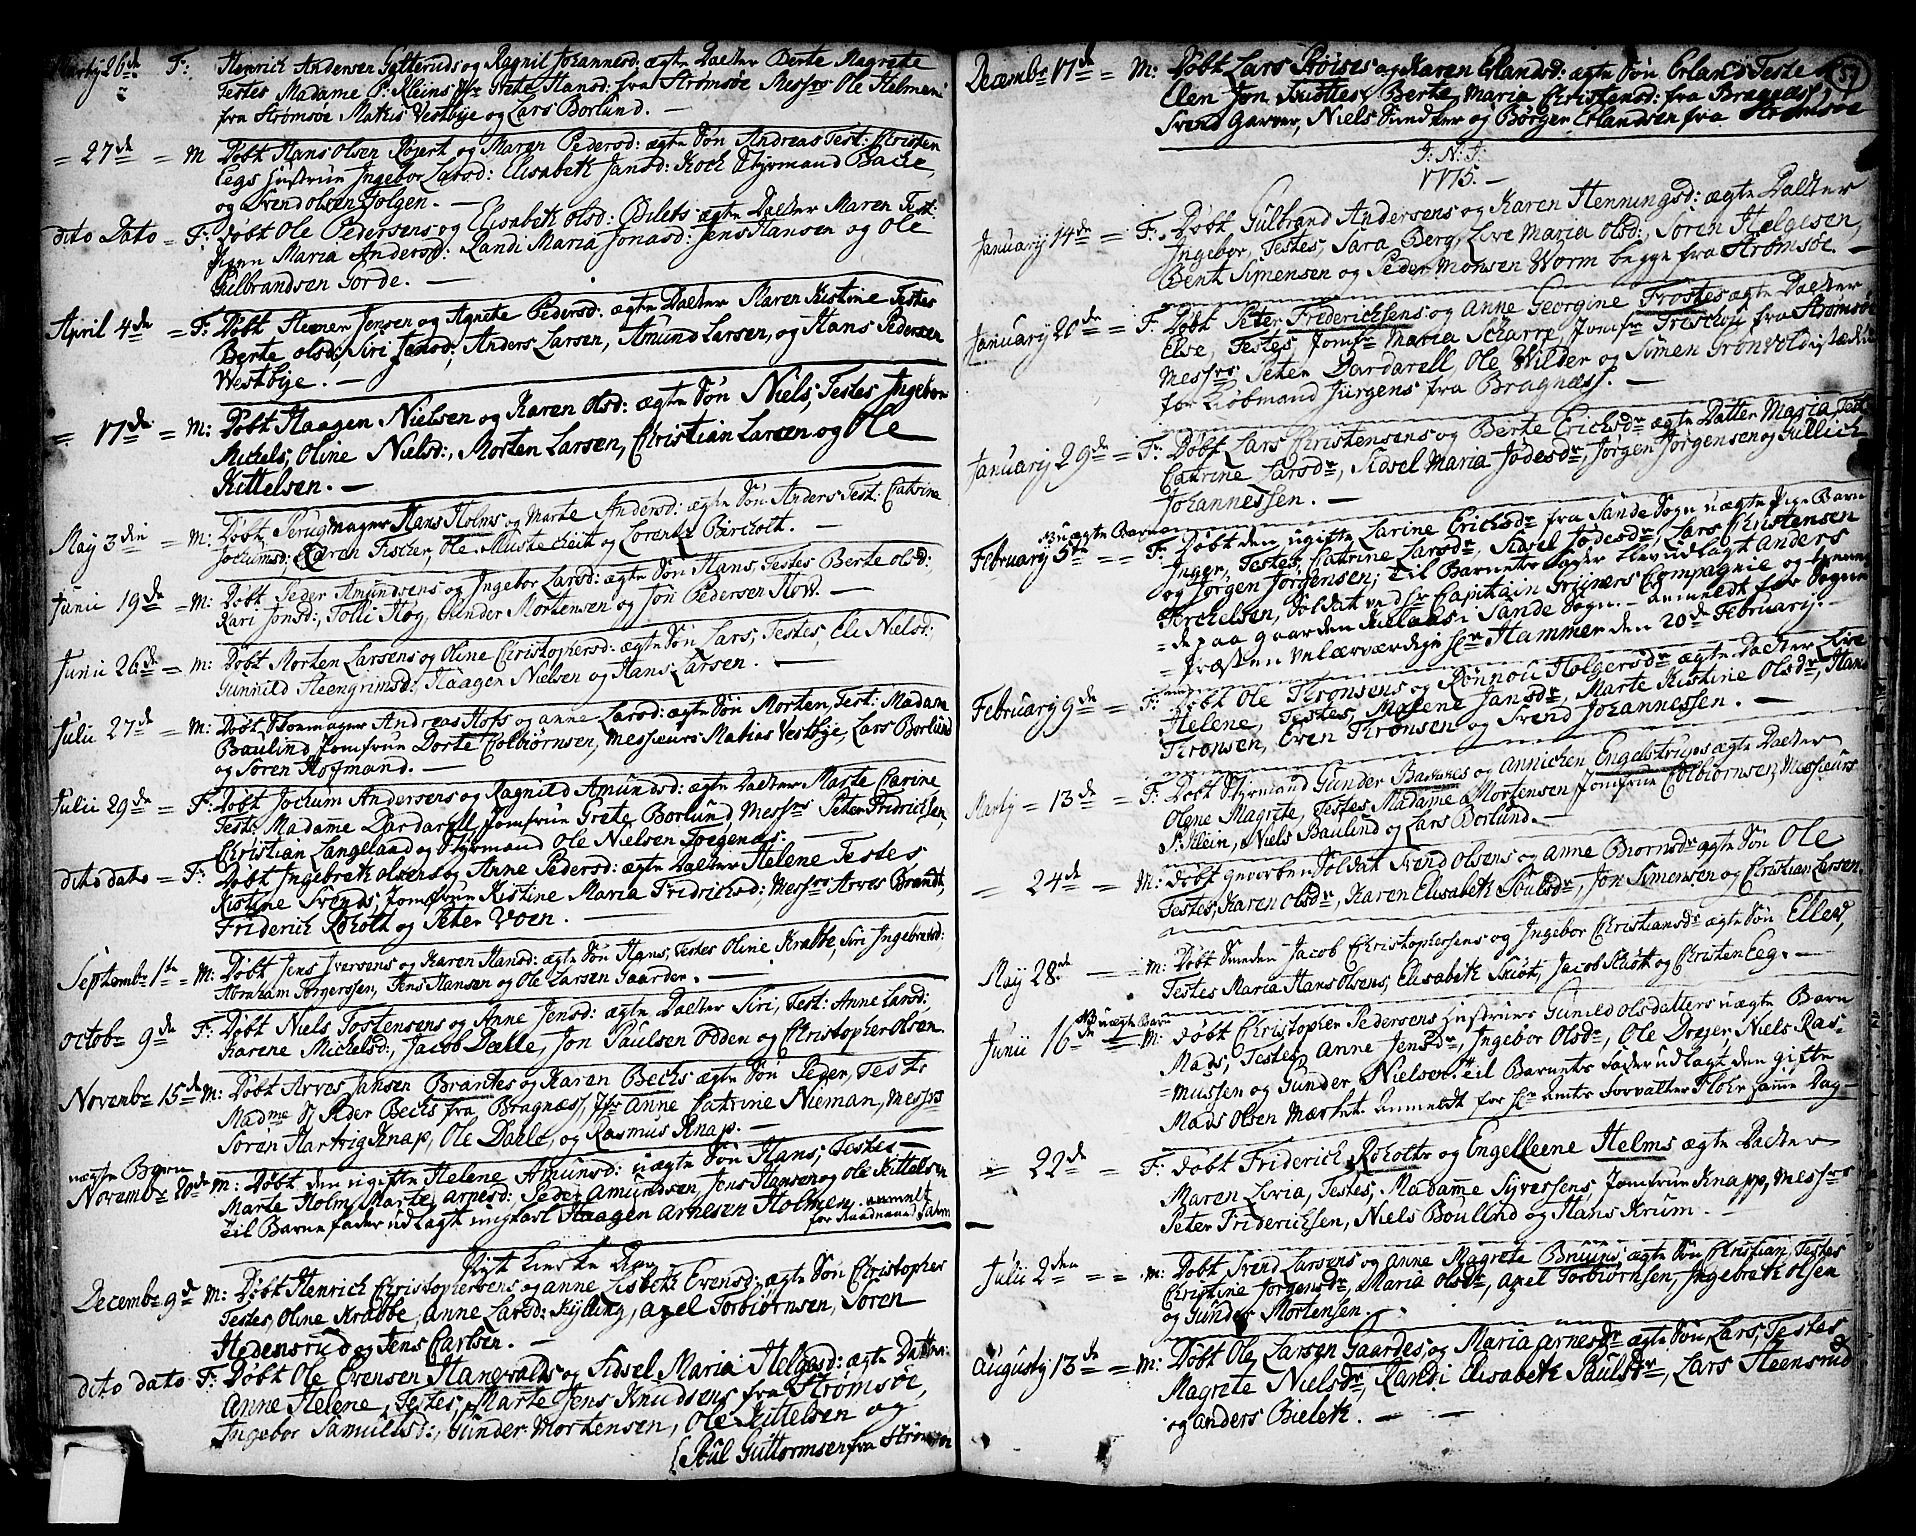 Marty 26de F: Henrich Andersen Galteruds og Ragnil Johannesd: ægte Datter Berte Magrete
Testes Madame P: Kleins Jfr Grete Hansd: fra Strømsøe Messrs Ole Helmen
fra Strømsøe Matis Vestbye og Lars Borlund. —
= 27de = M Døbt Hans Olsen Røjert og Maren Pedersd: ægte Søn Andreas Test: Christen
Legs Hustrue Ingebor Larsd: Elisabeth Jansd: Koch Styrmand Bache,
og Svend Olsen Folgen. —
dito Dato = F: Døbt Ole Pedersens og Elisabeth Olsd: Bilets ægte Datter Maren Test:
Pigen Maria Andersd: Randi Maria Jonasd: Jens Hansen og Ole
Gulbrandsen Gorde. —
April 4de = F: Døbt Steener Jensen og Agnete Pedersd: ægte Datter Maren Kistine Testes
Berte Olsd: Siri Jensd: Anders Larsen, Amund Larsen, og Hans Pedersen
Westbye. —
= 17de = M: Døbt Haagen Nielsen og Karen Olsd: ægte Søn Niels, Testes Ingebor
Michels, Oline Nielsd:, Morten Larsen, Christian Larsen og Ole
Kittelsen. —
May 3die = M: Døbt Perugmager Hans Holms og Marte Andersd: ægte Søn Anders Test: Catrine
Jochumsd: Karen Fischer, Ole Mustecheit og Lorentz Bircholt. —
Junii 19de = M: Døbt Peder Amundsens og Ingebor Larsd: ægte Søn Hans, Testes Berte Olsd:
Kari Jonsd:, Tolli Høg, Gunder Mortensen og Jon Pedersen How. —
Junii 26de = M: Døbt Morten Larsens og Oline Christophersd: ægte Søn Lars, Testes, Eli Nielsd:
Gunnild Steengrimsd: Haagen Nielsen og Hans Larsen. —
Julii 27de = M: Døbt Skomager Andreas Hofs og Anne Larsd: ægte Søn Morten, Test: Madam
Baulind Jomfrue Dorte Colbiørnsen, Messieurs Matias Vestbye, Lars Borlund
og Søren Hofmand. —
Julii 29de = F: Døbt Jochum Andersens og Ragnild Amundsd: ægte Datter Marte Carine
Test: Madame Dardarell Jomfrue Grete Borlund, Messrs Peter Fridrichsen,
Christian Langeland og Styrmand Ole Nielsen Toegenæs. —
dito dato = F: Døbt Ingebret Olsens og Anne Pedersd: ægte Datter Helene Testes
Kistine Svends, Jomfrue Kistine Maria Fridrichsd: Messrs Arves Brandt,
Friderich Roholt og Peter Voen. —
Septembr 1ste = M: Døbt Jens Iversens og Karen Hansd: ægte Søn Hans, Testes Oline Krabbe, Siri Ingebretsd:
Abraham Torgerssen, Jens Hansen og Ole Larsen Gaarder. —
Octobr 9de F: Døbt Niels Tostensens og Anne Jensd: ægte Datter Siri, Test: Anne Larsd:
Karene Michelsd:, Jacob Dælle, Jon Paulsen Odden og Christopher Olsen
Novembr 15de M: Døbt Arves Jansen Brantes og Karen Bechs ægte Søn Peder, Testes
Madme Sl Peder Bechs fra Bragnæs, Jfr Anne Catrine Nieman, Messrs
Søren Hartvig Knap, Ole Dahle, og Rasmus Knap. —
uægte Børn
Novembr 20de M: Døbt den ugifte Helene Amunsd: uægte Søn Hans, Testes —
Marte Holm, Marte Arnesd: Peder Amundsen, Jens Hansen og Ole Kittelsen
Til Barne fader udlagt ungkarl Haagen Arnesen Holmen. anmelt
for
Nyt Kirke Aar
Decembr 9de M: Døbt Henrich Christophersens og Anne Lisbeth Evensd: ægte Søn Christopher
Testes, Oline Krabbe, Anne Larsd: Kylling, Axel Torbiørnsen, Søren
Hedensrud og Jens Carlsen. —
dito dato F: Døbt Ole Evensen Hanevalds og Sidsel Maria Helgesd: ægte Datter
Anne Helene, Testes, Marte Jens Knudsens fra Strømsøe,
Ingebor Samuelsd:, Gunder Mortensen, Ole Kittelsen og
Poul Guttormsen fra Strømsøe
57
Decembr 17de = M: Døbt Lars Prøises og Karen Erlandsd: ægte Søn Erland Testes
Elen Jon Skiøttes, Berte Maria Christensd: fra Bragnæs,
Svend Garver, Niels Sundtner og Børger Erlandsen fra Strømsøe
I: N: J:
1775. —
January 14de = F: Døbt Gulbrand Andersens og Karen Henningsd: ægte Datter
Ingebor, Testes, Sara Berg, Live Maria Olsd:, Søren Helgesen,
Bent Simensen og Peder Monsen Worm begge fra Strømsøe. —
January 20de F: Døbt Peter Friderichsens og Anne Georgine Frostes ægte Datter
Else, Testes Jomfr Maria Scharp, Jomfr Trischou fra Strømsøe
Messrs Peter Dardarell, Ole Wilder og Simen Grønvold istæden
for Kiøbmand Jürgens fra Bragnæss. —
January 29de = F: Døbt Lars Christensens og Berte Erichsdr ægte Datter Maria, Test:
Catrine Larsdr, Sidsel Maria Jødesdr, Jørgen Jørgensen og Gullich
Johannessen. —
NB uægte Barn
February 5te = = F: Døbt den ugifte Larine Erichsdr fra Sande Sogn uægte Pige Barn
Inger, Testes, Catrine Larsdr, Sidsel Jødesdr, Lars Christensen
og Jørgen Jørgensen; til Barnets Fader blev udlagt Anders
Archelsen, Soldat ved Hr Capitain Grüners Compagnie og tienne-
= de paa gaarden i Sande Sogn. — Anmeldt for Sogne
= Præsten Velærværdige Hr Hammer den 20de February. —
February 9de = F: Døbt Ole Thronsens og Rønnou Holgersdr ægte Datter Live
Helene, Testes, Marene Jansdr, Marte Kistine Olsdr, Hans
Thronsen, Even Thronsen og Svend Johannessen. —
Marty = 13de = F: Døbt Styrmand Gunder Bachkes og Annichen Engelstrups ægte Datter
Olene Magrete, Testes Madame Mortensen Jomfrue Colbiørnsen, Messieurs
P: Klein, Niels Baulind og Lars Borlund. —
= 24de = M: Døbt gevorben Soldat Svend Olsens og Anne Biørnsdr ægte Søn Ole
Testes, Karen Olsdr, Karen Elisabeth Poulsdr, Jon Simensen og Christian Larsen.
May 28de — = M: Døbt Smeden Jacob Christophersens og Ingebor Christiansdr ægte Søn Ellert,
Testes Maria Hans Olsens, Elisabeth Skiøt, Jacob Skiøt og Christen Leg. —
NB uægte Barn
Junii 16de = M: Døbt Christopher Pedersens Hustrues Gunild Olsdatters uægte Barn
Mads, Testes Anne Jensdr, Ingebor Olsdr, Ole Dreyer, Niels Ras-
= mussen og Gunder Nielsen. til Barnets Fader udlagt den gifte
Mads Olsen Market. Anmeldt for Hr Amts Forvalter Flohr samme Dag —
= 22de = F: Døbt Friderich Roholts og Engelleene Helms ægte Datter
Maren Livia, Testes, Madame Syversens, Jomfrue Knapp, Messrs
Peter Friderichsen, Niels Boulind og Hans Krum. —
Julii 2den = = M: Døbt Svend Larsens og Anne Magrete Bruuns, ægte Søn Christian, Testes
Christine Jørgensdr, Maria Olsdr, Axel Torbiørnsen, Ingebreth Olsen
og Gunder Mortensen. —
Augusty 13de = M: Døbt Ole Larsen Gaardes og Maria Arnesdr ægte Søn Lars, Testes
Magrete Nielsdr, Randi Elisabeth Paulsdr, Lars Steensrud
og Anders Bieleth. — —